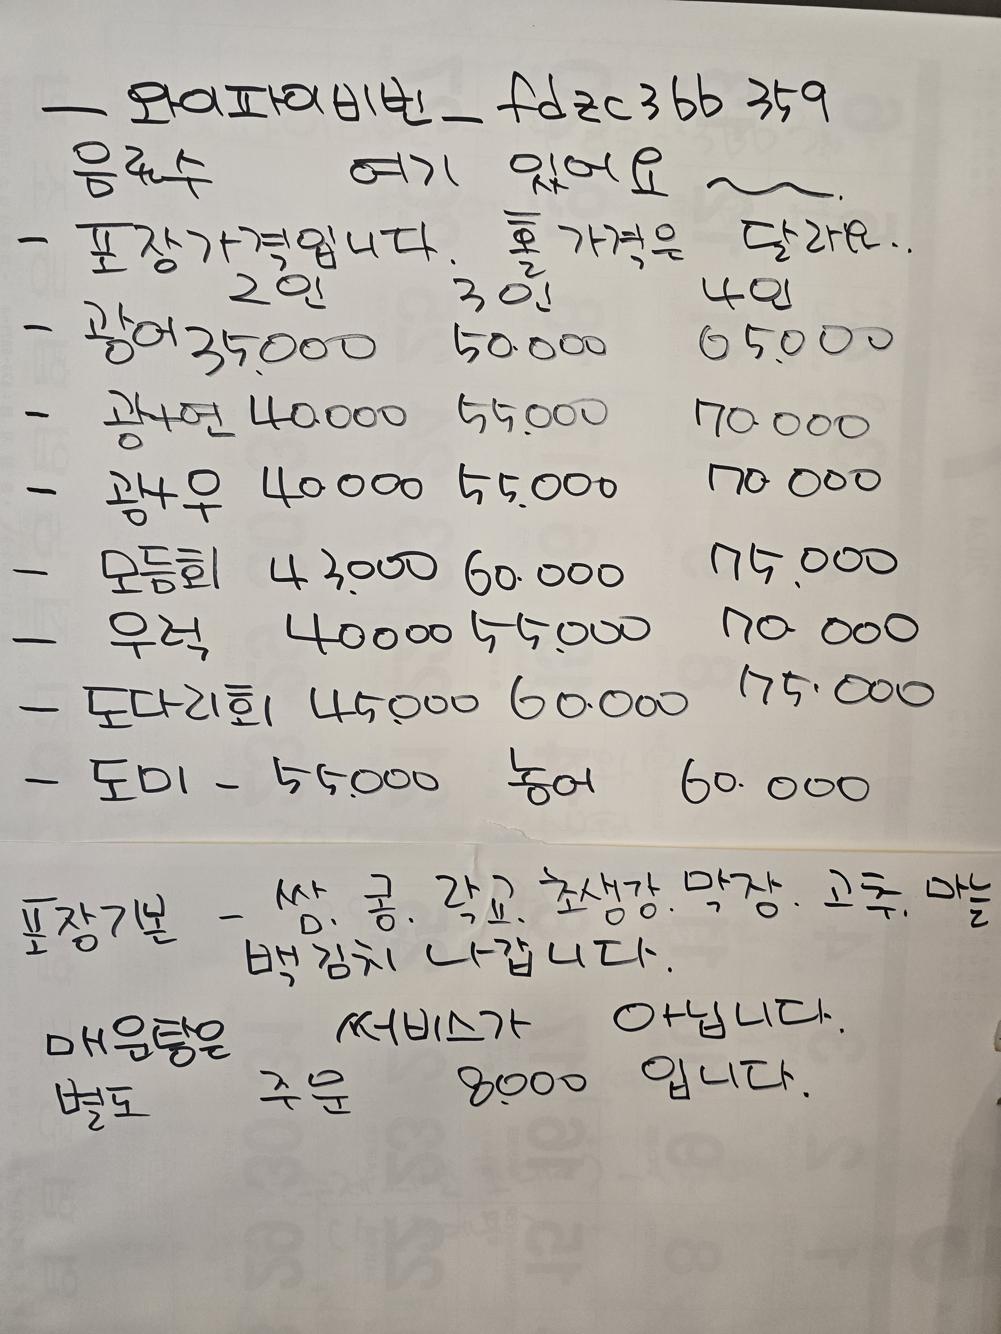 — 와이파이비번 _ fdzc3bb359
음료수 여기 있어요 ~~.
- 포장가격입니다. 홀 가격은 달라요..
2인 3인 4인
- 광어 35.000 50.000 65.000
- 광+연 40.000 55.000 70.000
- 광+우 40.000 55.000 70.000
- 모듬회 43.000 60.000 75.000
- 우럭 40000 55.000 70.000
- 도다리회 45.000 60.000 75.000
- 도미 - 55.000 농어 60.000
포장기본 - 쌈. 콩. 락교. 초생강. 막장. 고추. 마늘
백김치 나갑니다.
매운탕은 써비스가 아닙니다.
별도 주문 8.000 입니다.